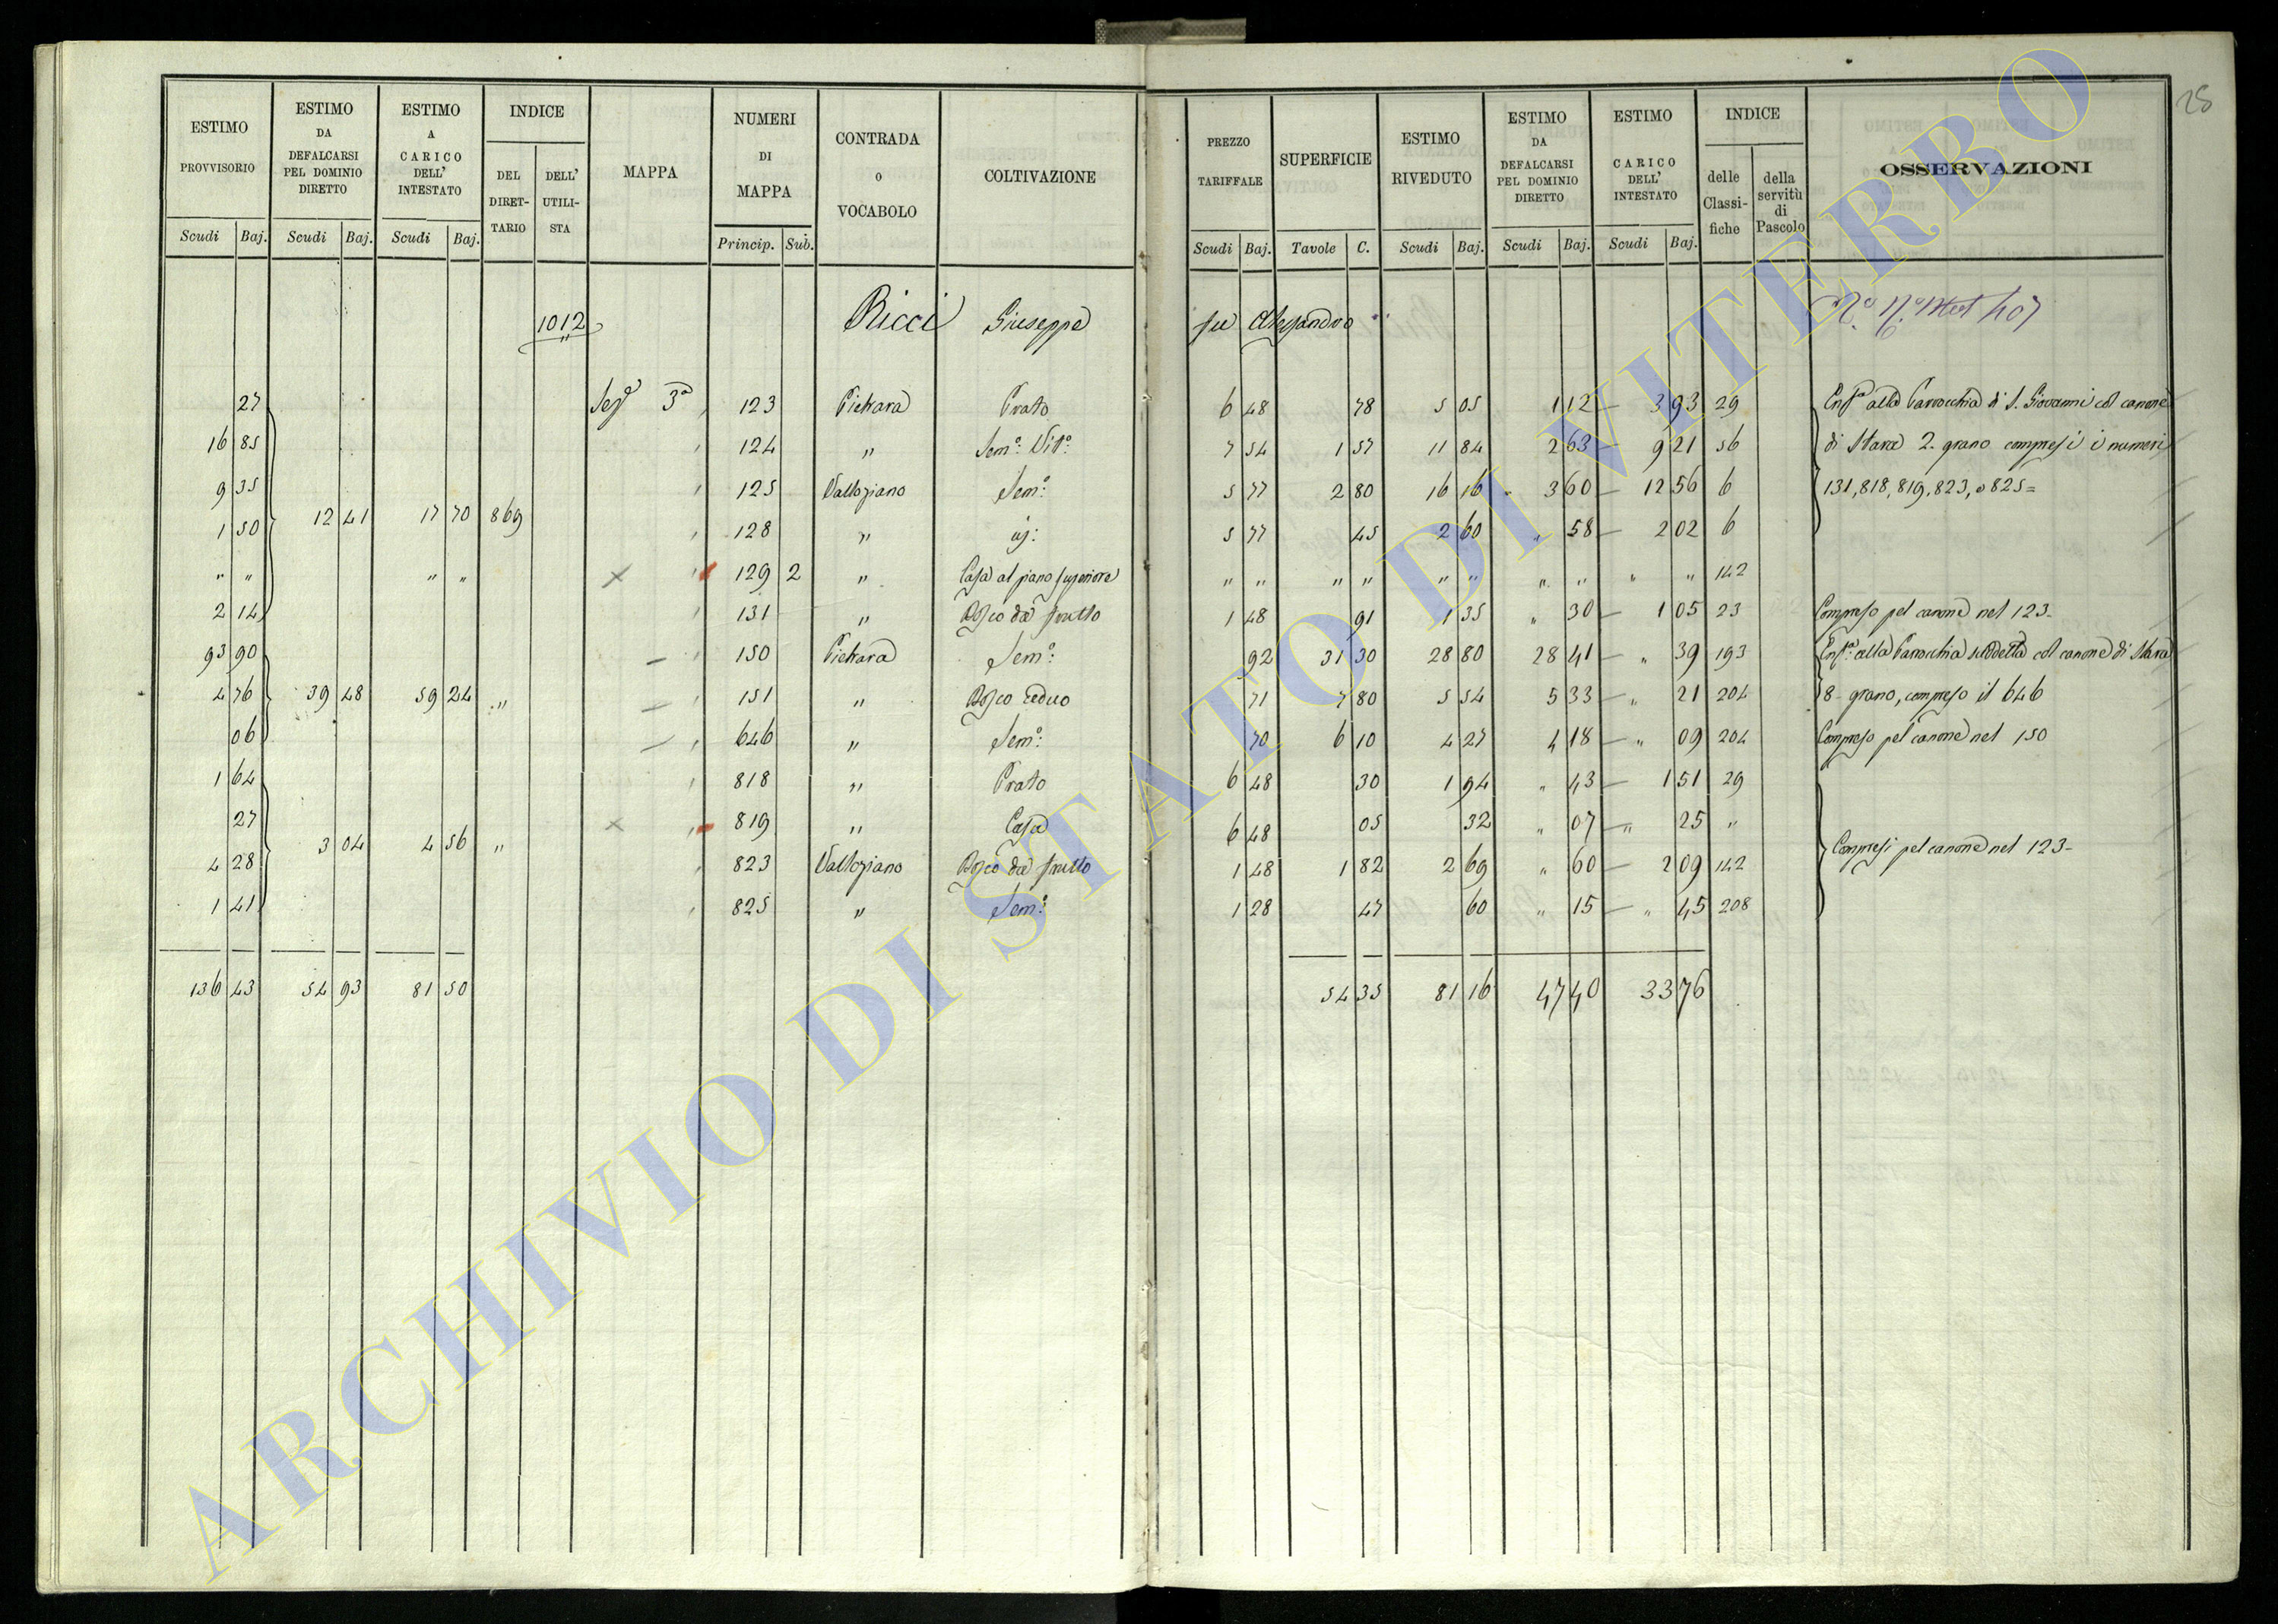 28
ESTIMO PROVVISORIO
ESTIMO DA DEFALCARSI PEL DOMINIO DIRETTO
ESTIMO A CARICO DELL' INTESTATO
INDICE
DEL DIRETTARIO
DELL' UTILISTA
MAPPA
NUMERI DI MAPPA
CONTRADA O VOCABOLO
COLTIVAZIONE
Scudi Baj. Scudi Baj. Scudi Baj. Princip. Sub.
PREZZO TARIFFALE
SUPERFICIE
ESTIMO RIVEDUTO
ESTIMO DA DEFALCARSI PEL DOMINIO DIRETTO
ESTIMO CARICO DELL' INTESTATO
INDICE
delle Classifiche
della servitù di Pascolo
OSSERVAZIONI
Scudi Baj. Tavole C. Scudi Baj. Scudi Baj. Scudi Baj.
1012 Ricci Giuseppe fu Alessandro
27 Sezᵉ 3ª 123 Pietrara Prato 6 48 78 5 05 1 12 — 3 93 29 Enfª alla Parrocchia di S. Giovanni col canone
16 85 124 " Semº Vitº 7 54 1 57 11 84 2 63 — 9 21 56 di Stara 2. grano compresi i numeri
9 35 125 Vallopiano Semº: 5 77 2 80 16 16 3 60 — 12 56 6 131, 818, 819, 823, e 825 =
1 50 12 41 17 70 869 128 " id: 5 77 45 2 60 " 58 — 2 02 6
" " " " 129 2 " Casa al piano superiore " " " " " " " " " " 142
2 14 131 " Bosco da frutto 1 48 91 1 35 " 30 — 1 05 23 Compreso pel canone nel 123-
93 90 150 Pietrara Semº: 92 31 30 28 80 28 41 — " 39 193 Enfª alla Parrocchia suddetta col canone di Stara
4 76 39 48 59 24 " 151 " Bosco ceduo 71 7 80 5 54 5 33 — " 21 204 8 grano, compreso il 646
06 646 " Semº: 70 6 10 4 27 4 18 — " 09 204 Compreso pel canone nel 150
1 64 818 " Prato 6 48 30 1 94 " 43 — 1 51 29
27 819 " Casa 6 48 05 32 " 07 — " 25 "
3 04 4 56 " Compresi pel canone nel 123-
4 28 823 Vallopiano Bosco da frutto 1 48 1 82 2 69 " 60 — 2 09 142
1 41 825 " Semº: 1 28 47 60 " 15 — " 45 208
136 43 54 93 81 50 54 35 81 16 47 40 33 76
ARCHIVIO DI STATO DI VITERBO